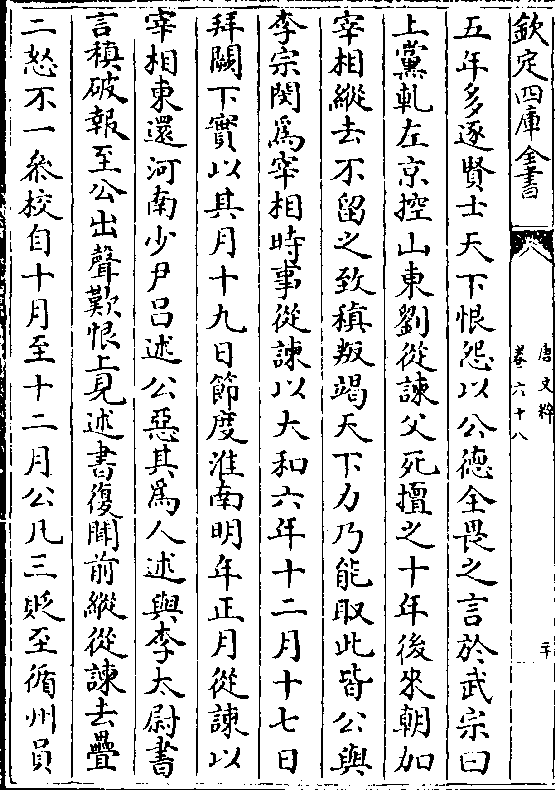 欽定四庫全書
唐文粹
卷六十八
五年多逐賢士天下恨怨以公德全畏之言於武宗曰
上黨軋左京控山東劉從諫父死擅之十年後來朝加
宰相縱去不留之致稹叛竭天下力乃能取此皆公與
李宗閔爲宰相時事從諫以大和六年十二月十七日
拜闕下實以其月十九日節度淮南明年正月從諫以
宰相東還河南少尹吕述公惡其爲人述與李太尉書
言稹破報至公出聲歎恨上見述書復聞前縱從諫去疊
二怒不一叅校自十月至十二月公凡三貶至循州員